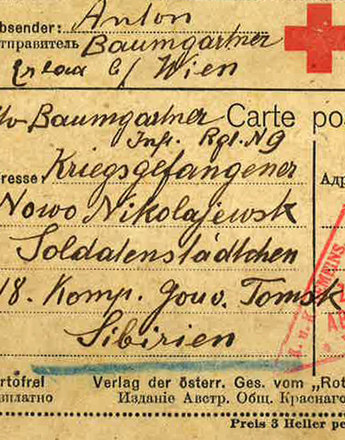 bsender: Anton
тправитель Baumgartner
Erlaa b/ Wien
Baumgartner Carte po
Inft. Rgt. N9
resse Kriegsgefangener
Адр
Nowo Nikolajewsk
Soldatenstädtchen
18. Komp. Gouv. Tomsk
Sibirien
rtofrei Verlag der österr. Ges. vom „Rot
зплатно Изданіе Австр. Общ. Краснаго
Preis 3 Heller pe